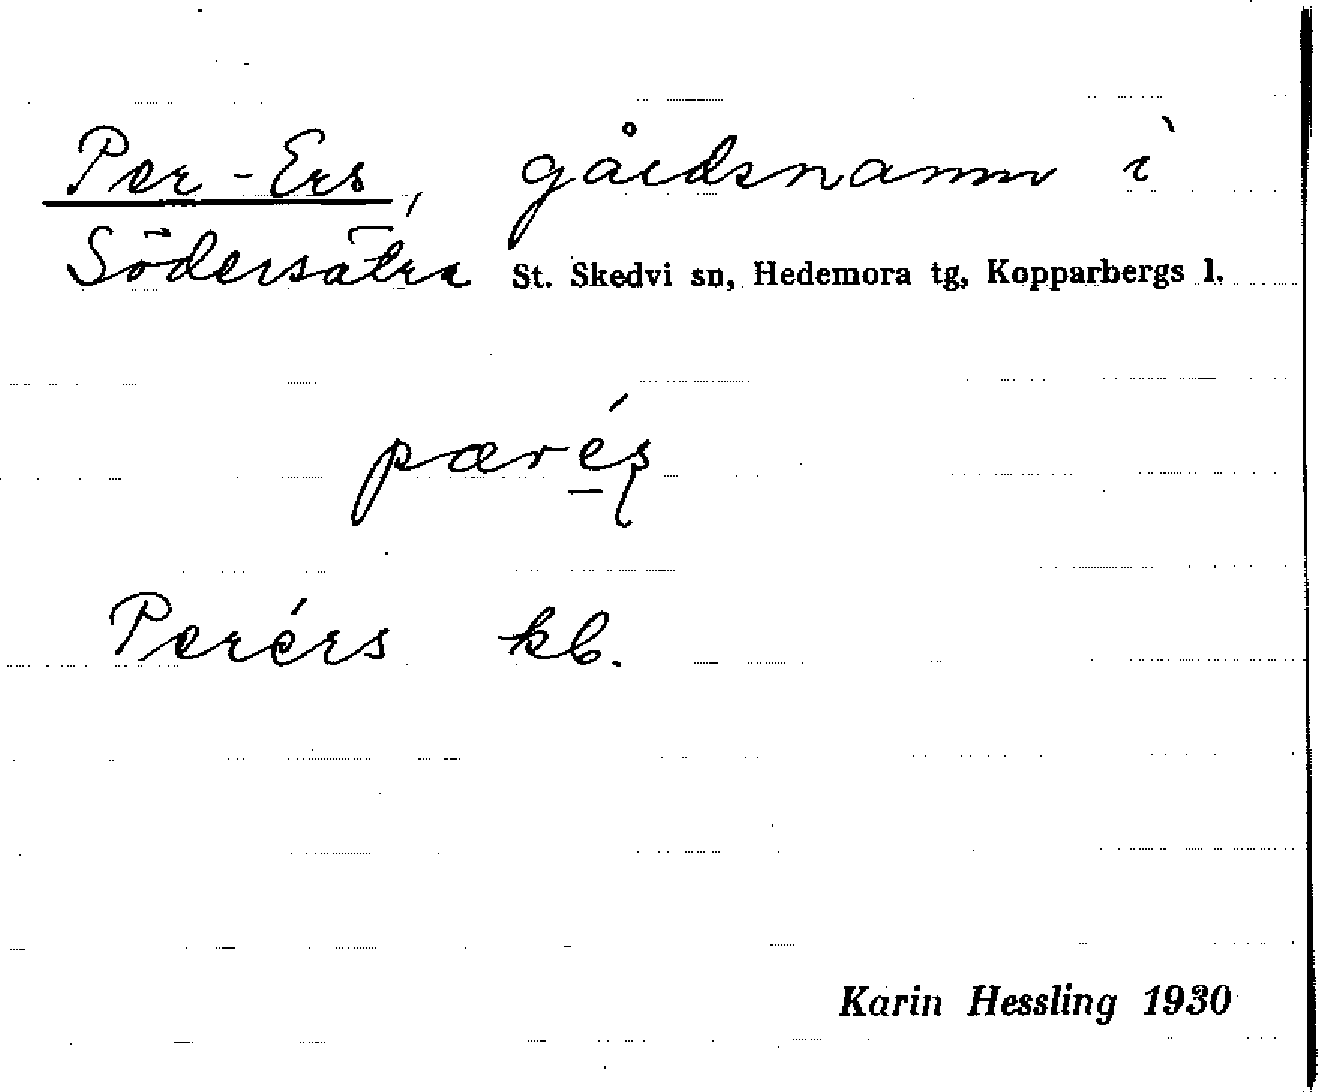 Per-Ers, gårdsnamn i
Södersätra St. Skedvi sn, Hedemora tg, Kopparbergs l.
pærés̠
Perérs kb.
Karin Hessling 1930